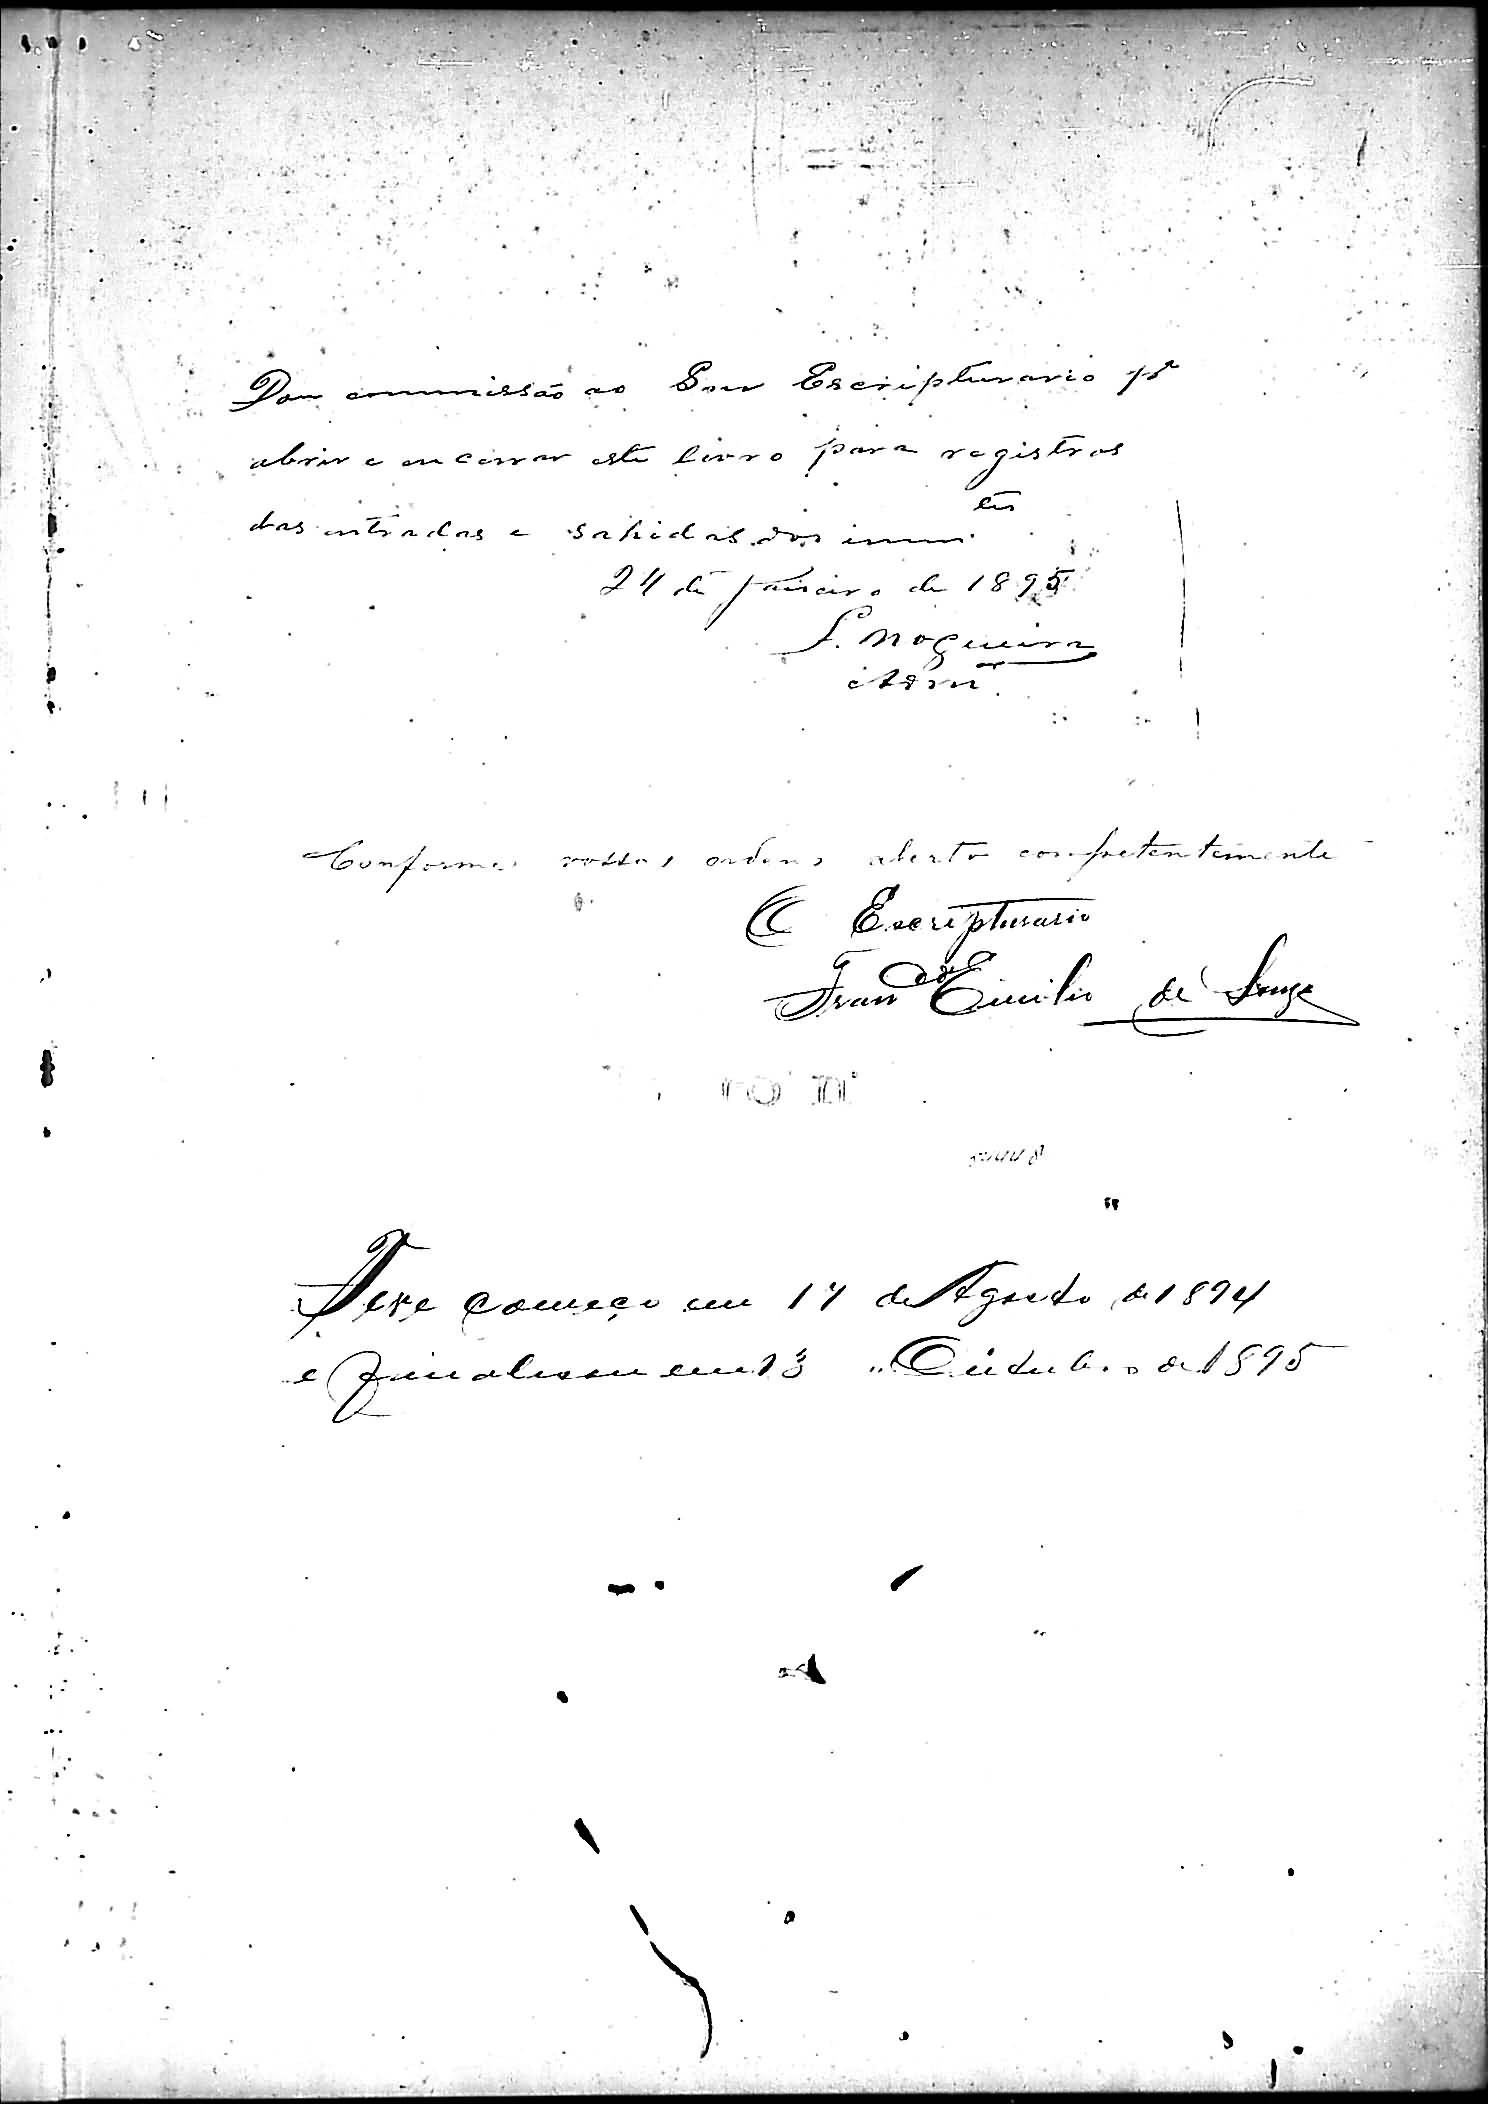 1
Dou commissão ao Snr Escripturario pª
abrir e encerrar este livro para registros
das entradas e sahidas dos immtes
24 de Janeiro de 1895
L. Nogueira
Admor
Conforme vossas ordens aberto competentemente
O Escripturario
Francco Emilio de Souza
Teve começo em 17 de Agosto de 1894
e finalisou em 13 " Outubro de 1895